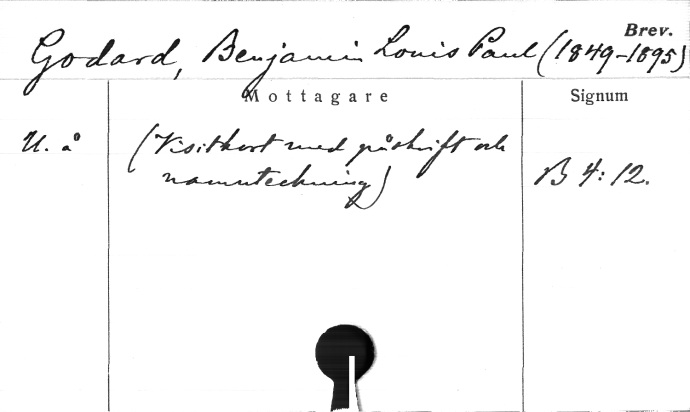 Brev.
Godard, Benjamin Louis Paul (1849-1895)
Mottagare Signum
U. å (Visitkort med påskrift och
namnteckning) B 4:12.